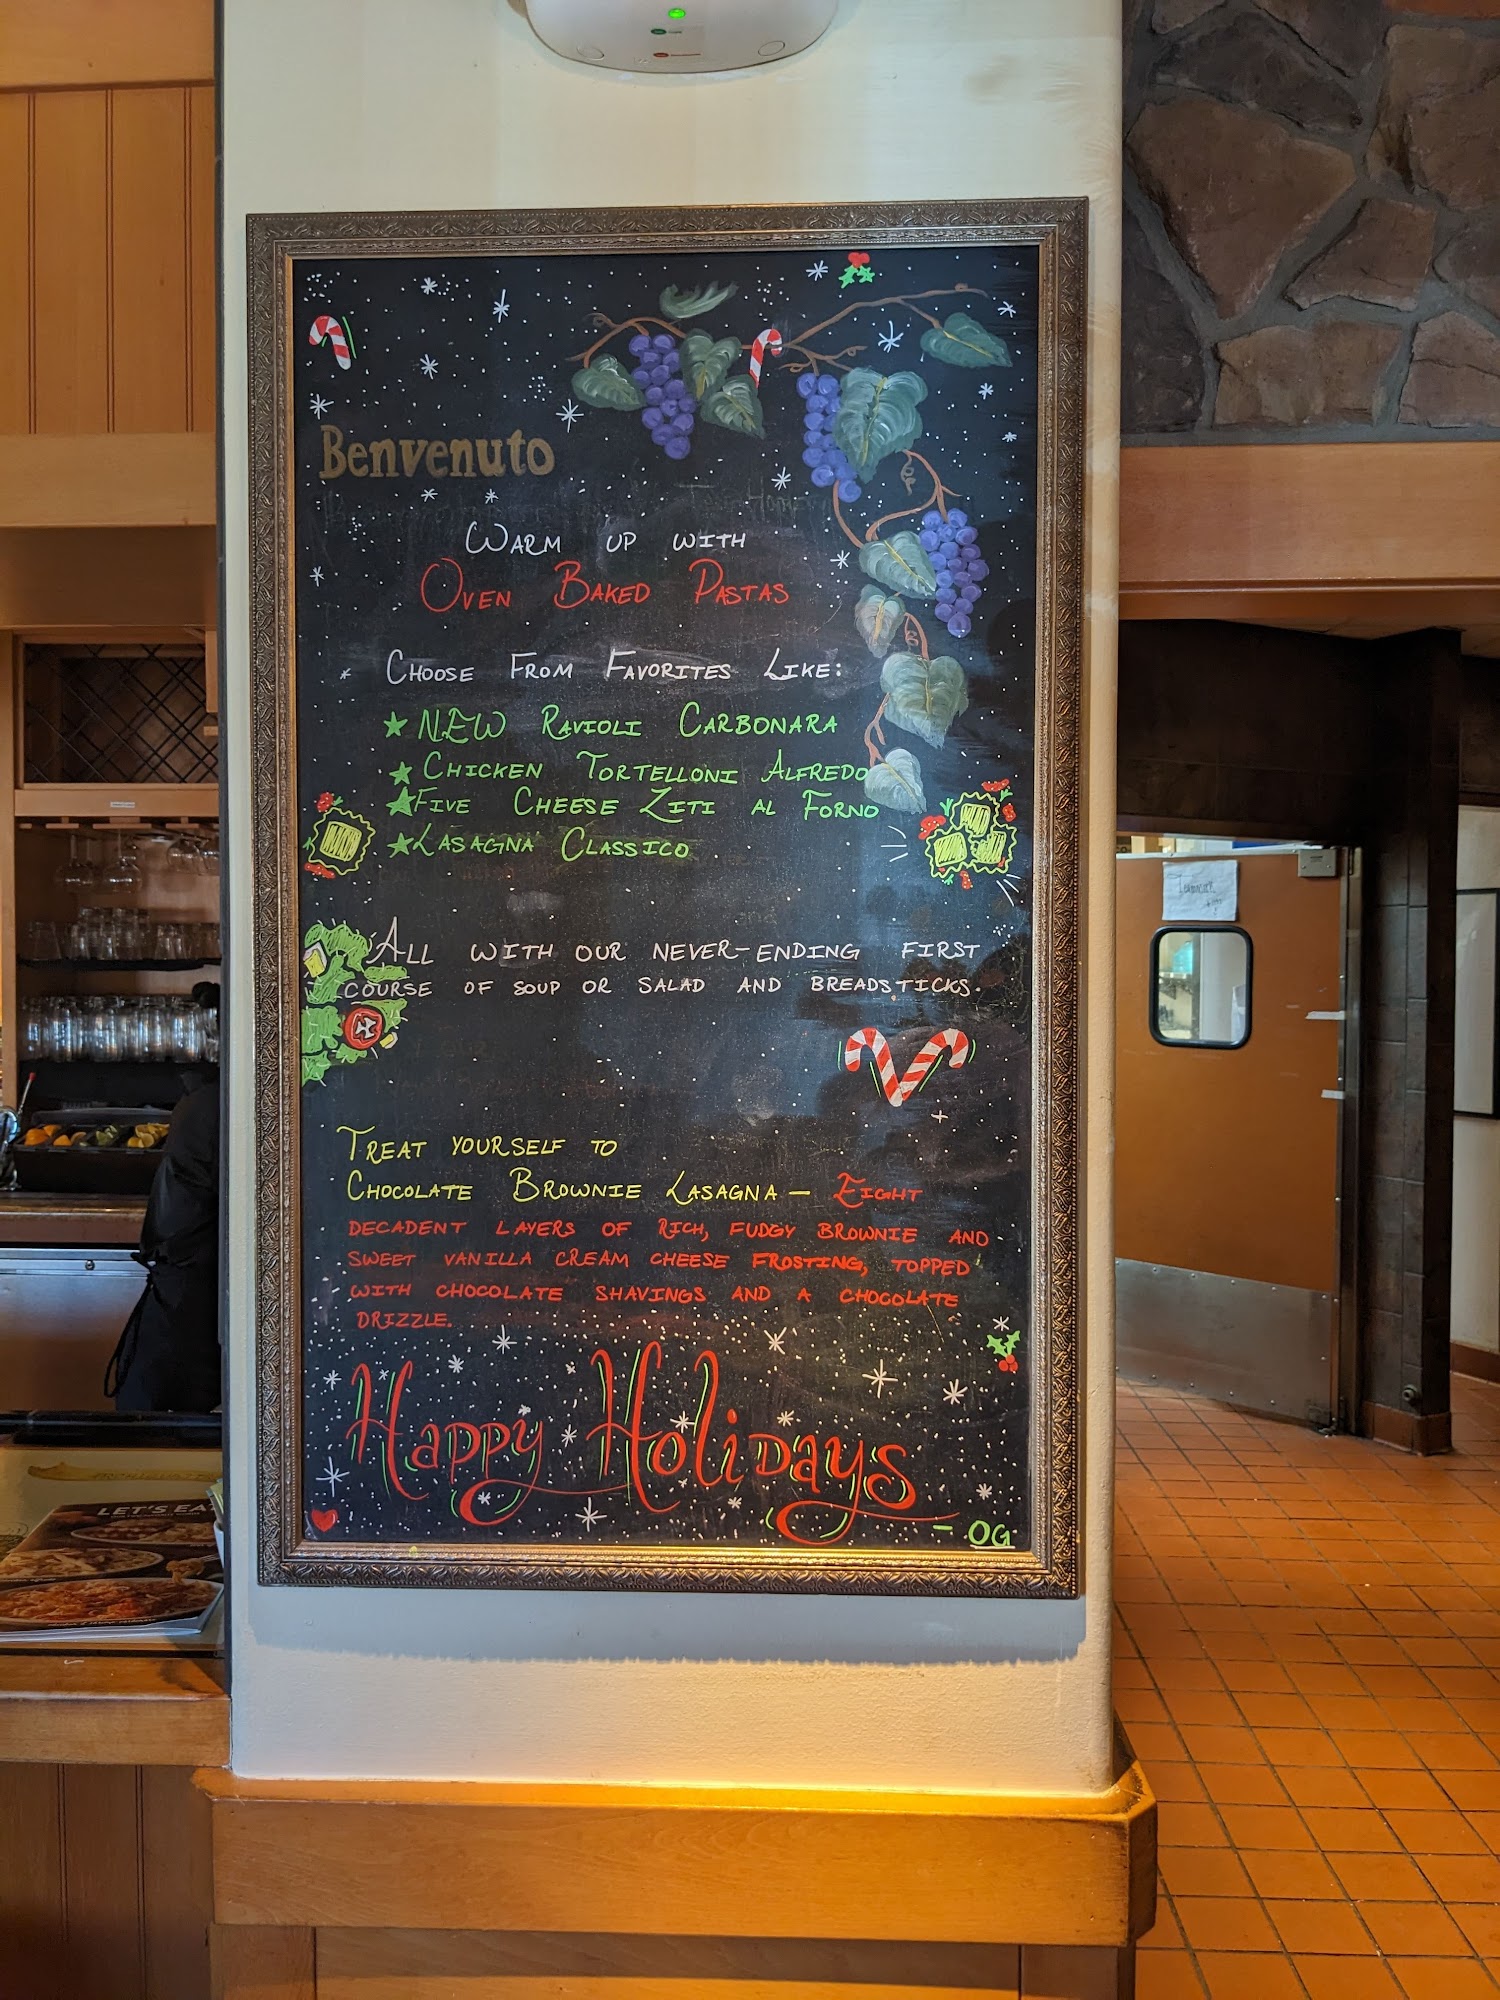 Benvenuto
WARM UP WITH
OVEN BAKED PASTAS
CHOOSE FROM FAVORITES LIKE:
★ NEW RAVIOLI CARBONARA
★ CHICKEN TORTELLONI ALFREDO
★ FIVE CHEESE ZITI AL FORNO
★ LASAGNA CLASSICO
ALL WITH OUR NEVER-ENDING FIRST
COURSE OF SOUP OR SALAD AND BREADSTICKS.
TREAT YOURSELF TO
CHOCOLATE BROWNIE LASAGNA - EIGHT
DECADENT LAYERS OF RICH, FUDGY BROWNIE AND
SWEET VANILLA CREAM CHEESE FROSTING, TOPPED
WITH CHOCOLATE SHAVINGS AND A CHOCOLATE
DRIZZLE.
Happy Holidays
- OG
LET'S EA